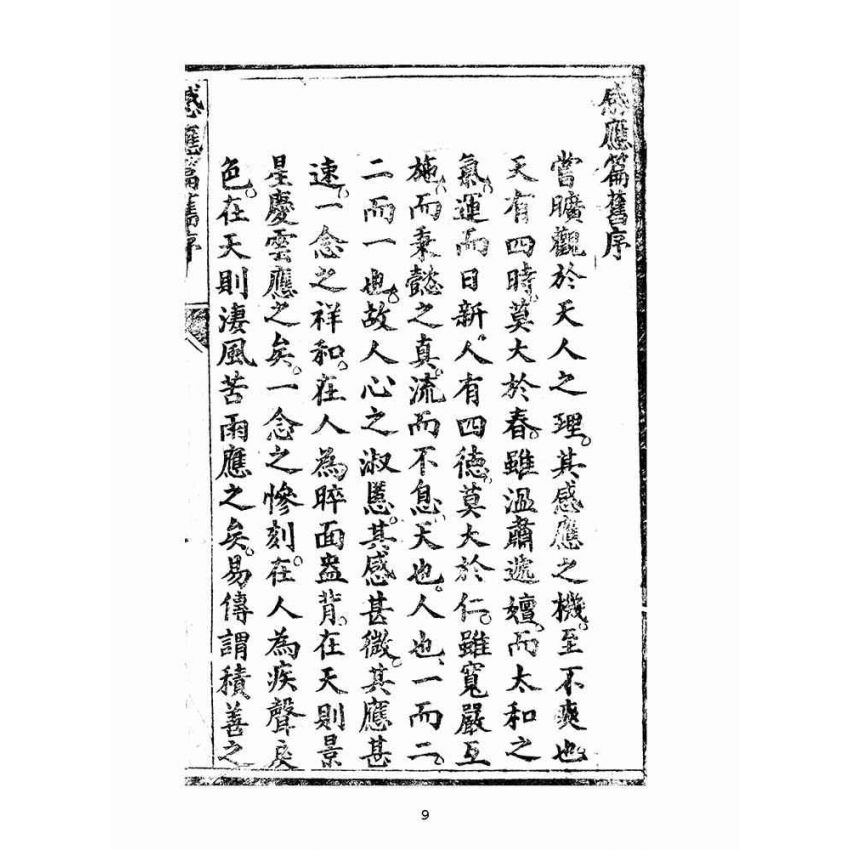 感應篇舊序
當曠觀於天人之理。其感應之機。至不爽也
天有四時。莫大於春。雖溫肅遞嬗。而太和之
氣。運而日新。人有四德。莫大於仁。雖寬嚴互
施。而秉懿之真。流而不息。天也。人也。一而二。
二而一也。故人心之淑慝。其感甚微。其應甚
速。一念之祥和。在人為睟面盎背。在天則景
星慶雲應之矣。一念之慘刻。在人為疾聲戾
色。在天則淒風苦雨應之矣。易傳謂積善之
感應篇舊序
9